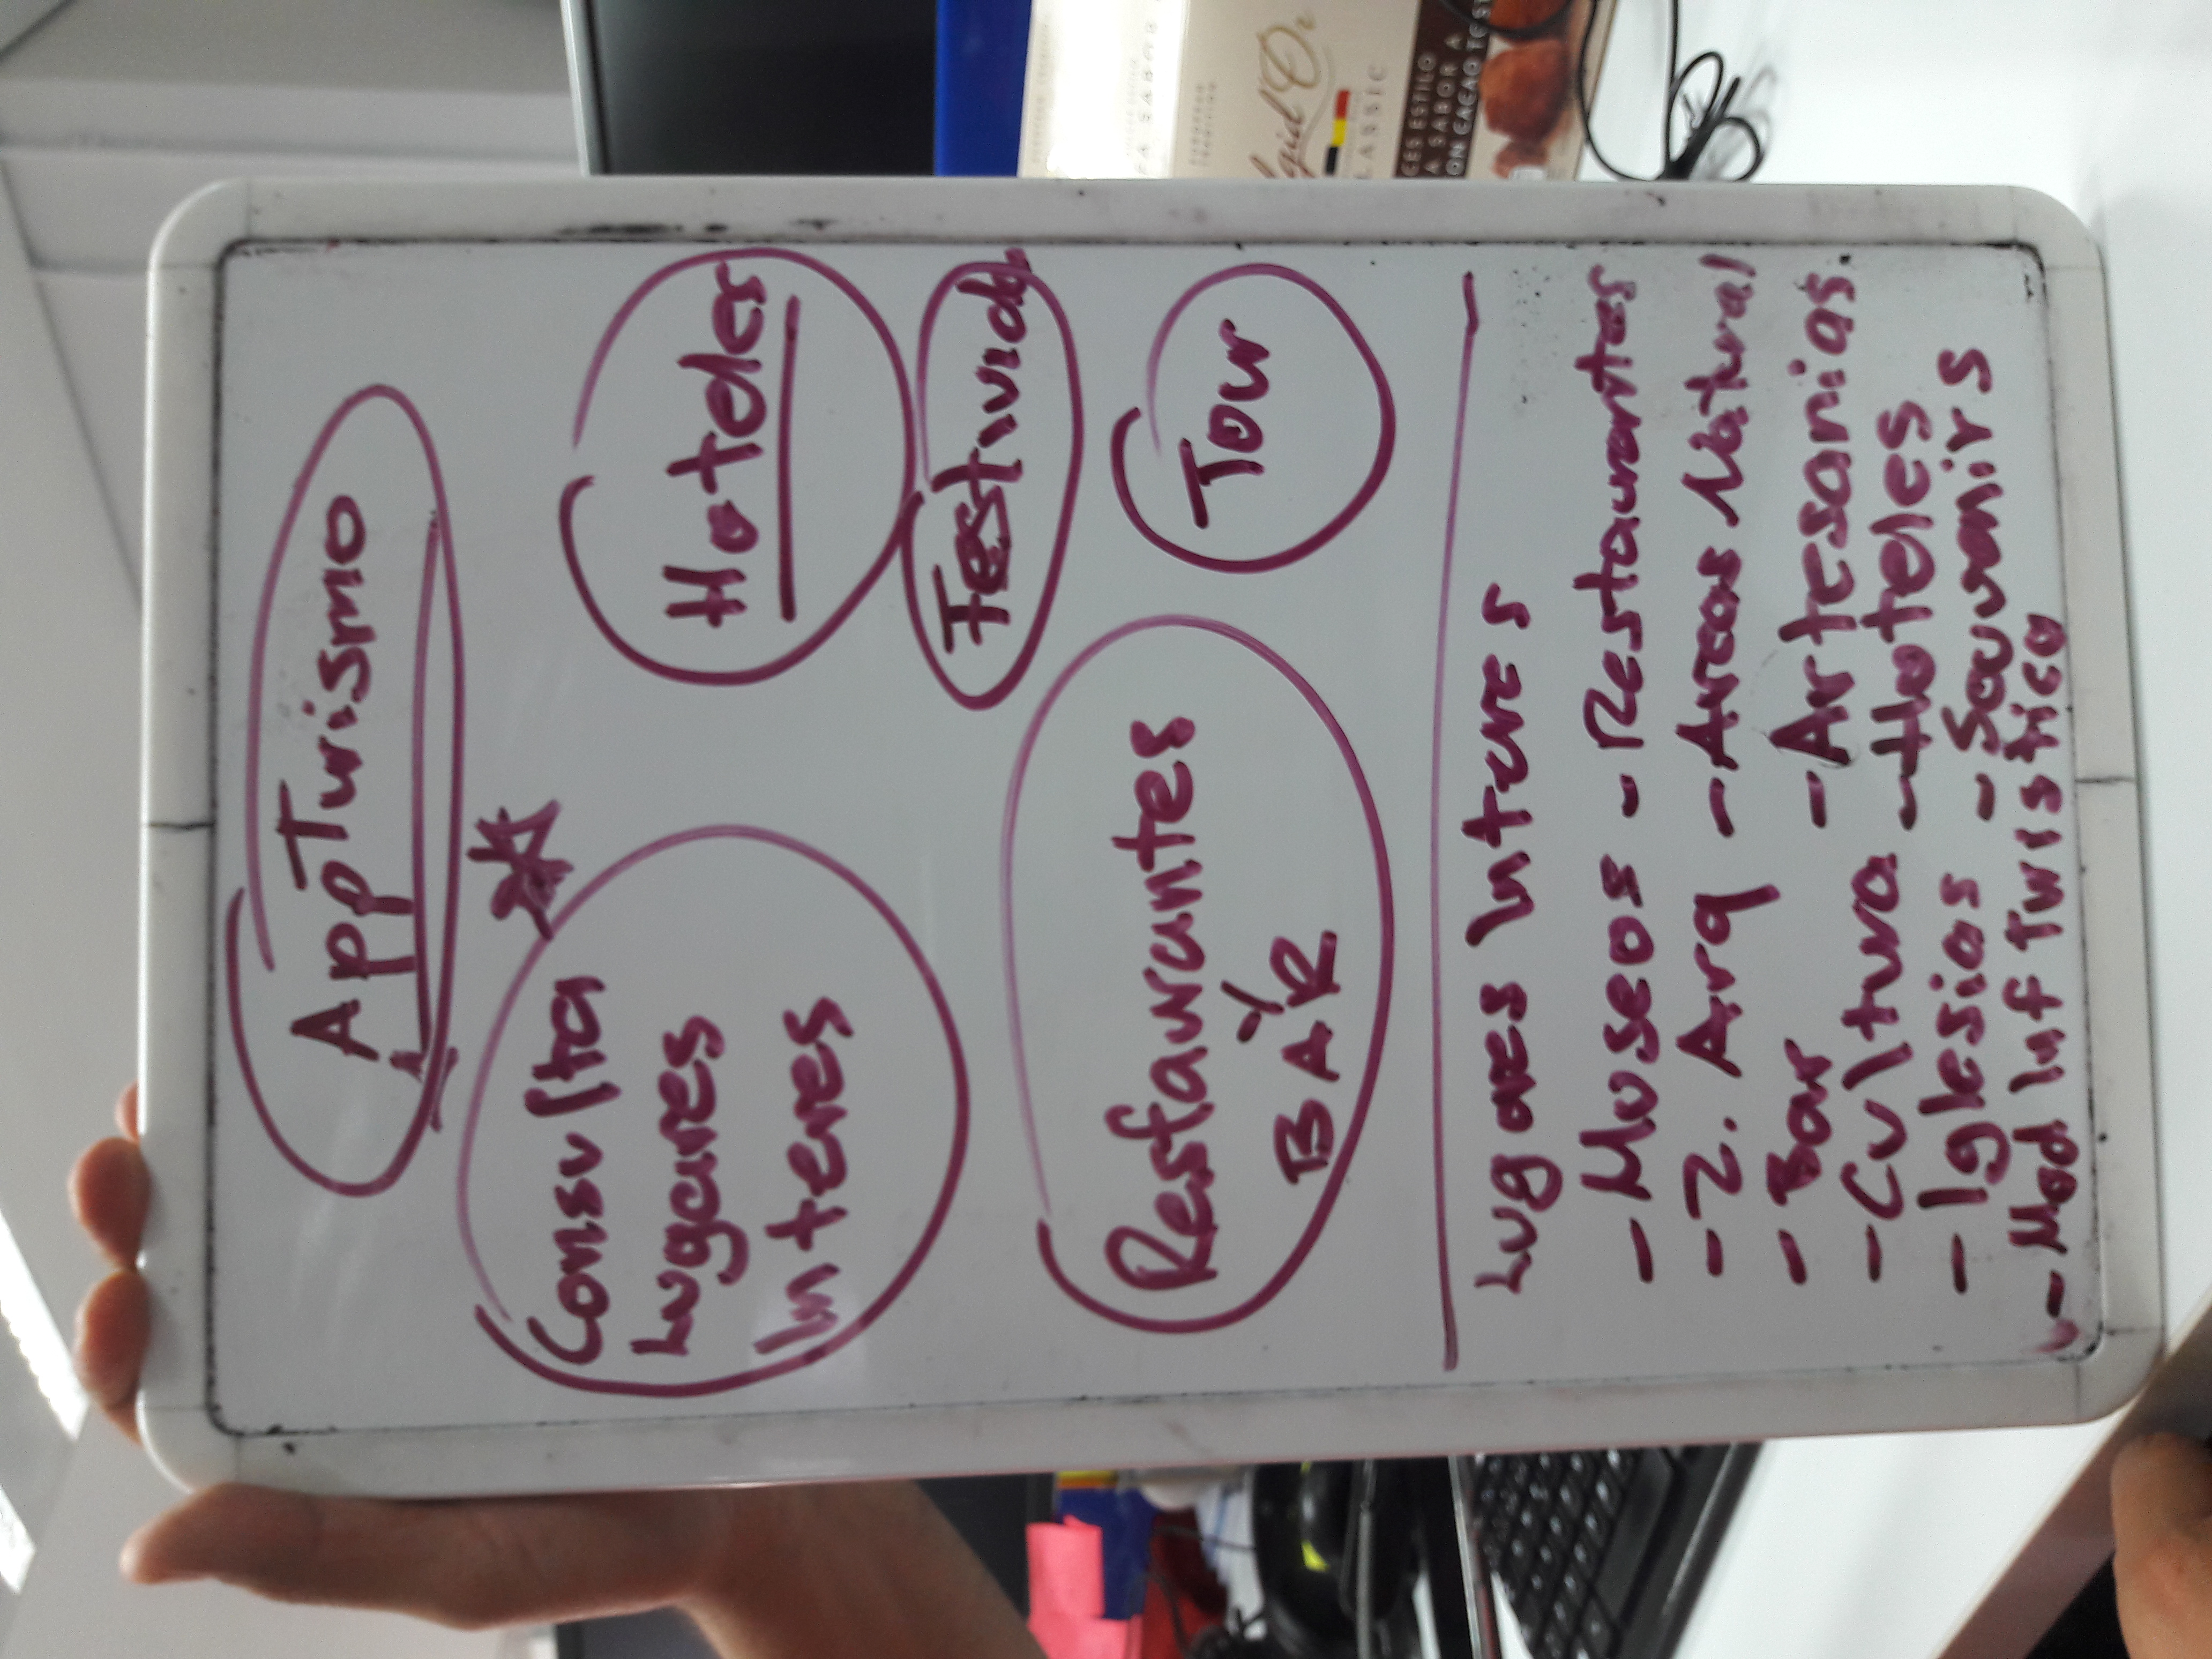 AppTurismo
Consulta
Lugares
Interes
Hoteles
Festivid
Restaurantes
Y
BAR
Tour
Lugares Interes
- Museos - Restaurantes
- Z. Arq - Areas Natural
- Bar - Artesanias.
- Cultura - Hoteles
- Iglesias - Souvenirs
- Mod Inf Turistico
FA SABOR
EUROPEAN
TRADITION
LASSIC
CES ESTILO
A SABOR A
ON CACAO TEST